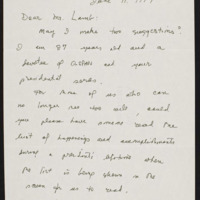 Dear Mr. Lamb:
May I make two suggestions?
I am 87 years old and a
devotee of C-SPAN and your
presidential series.
For those of us who can
no longer see too well, could
you please have someone read the
list of happenings and accomplishments
during a president's lifetime when
the list is being shown on the
screen for us to read.